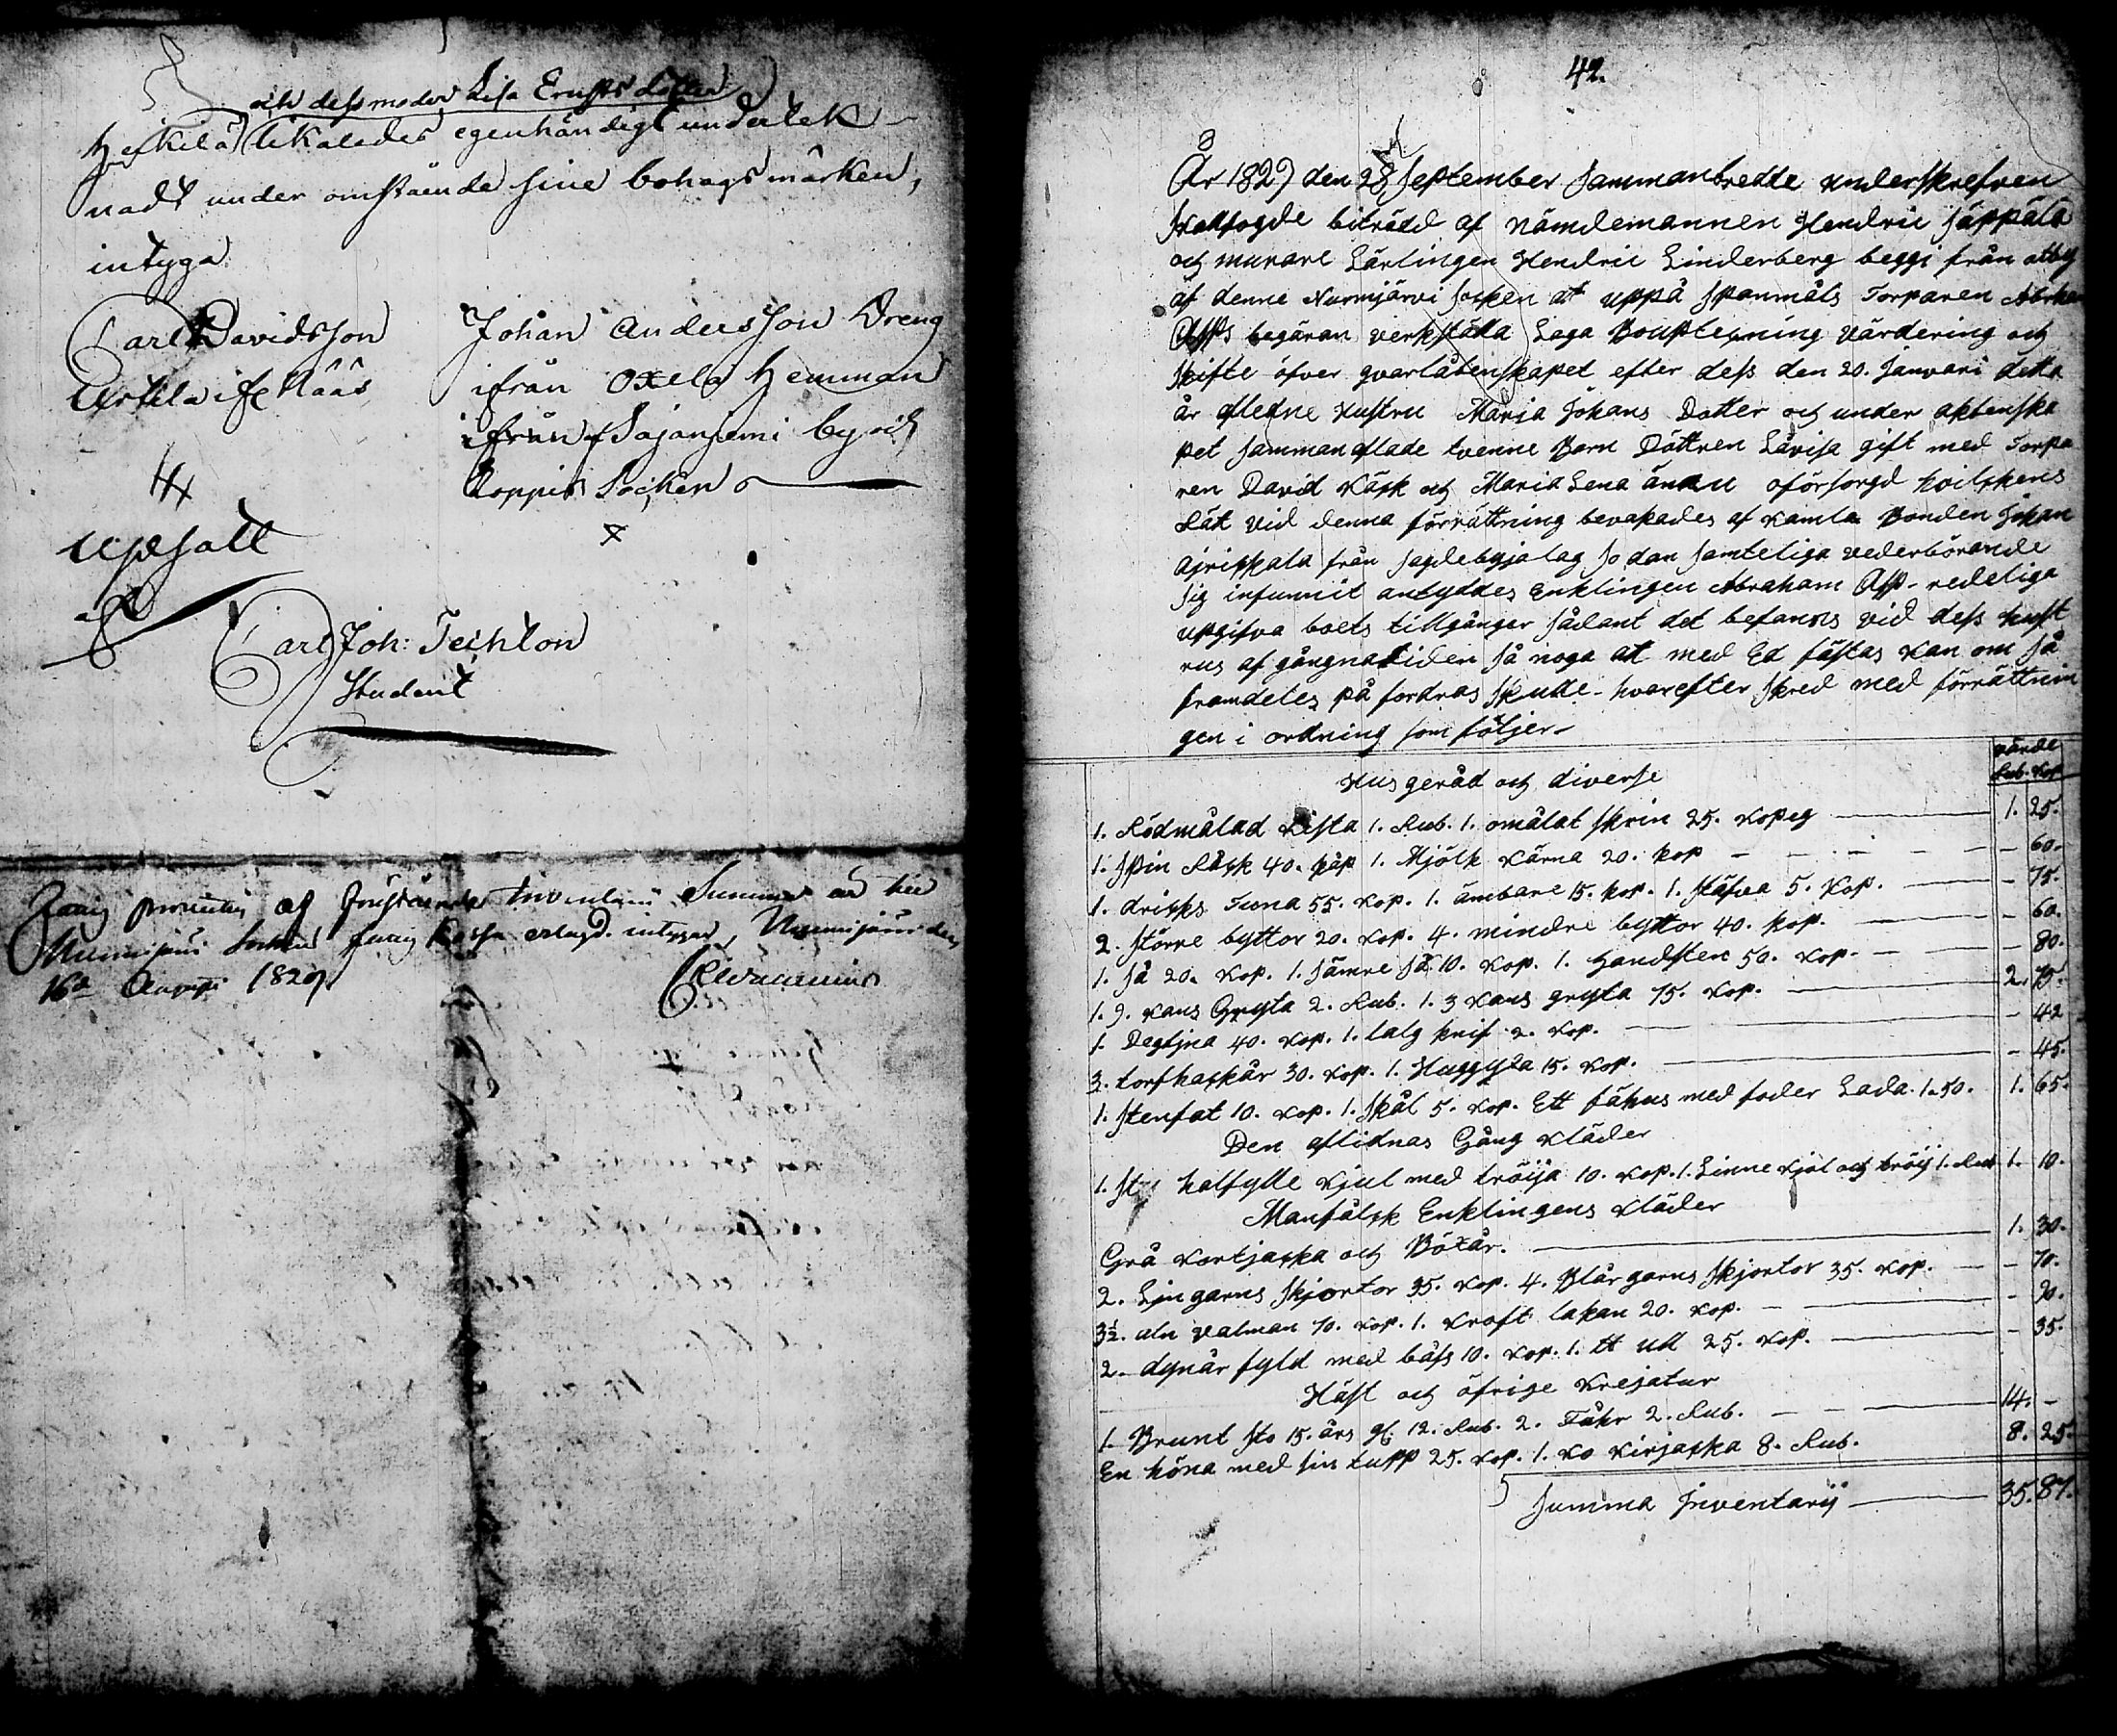 och dess moder Lisa Ernsts dotter
Heikilä likaledes egenhändigt undertek-
nadt under omstående sine bohags märken,
intyga
Carl Davidsson
Johan Andersson Dreng
ifrån Oxela Hemman
ifrån Sajanjemi by och
Loppis Socken
Upsatt
af
Carl Joh: Techlon
Student
af Inventarii Summa
Socken erlagd. intygar, Nurmijärvi den
16de Augusti 1829
42.
År 1829 den 28 September Sammanträdde underskrefven
biträdd af Nämdemannen Hendric Säppälä
och murare Lärlingen Hendric Linderberg beggi från
af denne Nurmjärvi Socken at uppå Spanmåls Torparen Abraham
Asps begäran verkställa Laga Boupteckning värdering och
Skifte öfver qvarlåtenskapet efter dess den 20. Januari detta
år afledne Hustru Maria Johans Dotter och under äktenska
pet Sammanaflade tvenne Barn Döttren Lovisa gift med Torpa
ren David Käsk och Maria Lena ännu oförsorgd hvilkens
Rät vid denna förrättning bevakades af Bonden Johan
från Sagdebyjalag so dan Samteliga vederbörande
Sig infunnit antyddes Enklingen Abraham Asp- redeliga
upgifva boets tillgånger Sådant det befanns vid dess hust
rus af gångnatiden Så noga att med Ed fästas kan om Så
framdeles på fordras Skulle- hvarefter Skred med förrättnin
gen i ordning som följer-
värde
Rub. Kop
Hus geråd och diverse
1. Rödmålad Kista 1. Rub. 1. omålat Skrin 25. Kopeg 1. 25.
1. Spin Råck 40. kåp 1. Mjölk Kärna 20. kop - 60.
1. dricks Tuna 55. Kop. 1. ämbare 15. kop. 1. Stäfva 5. Kop. - 75.
2. Större byttor 20. Kop. 4. mindre byttor 40. kop. - 60.
1. Så 20. Kop. 1. Sämre Så 10. Kop. 1. Handsten 50. Kop. - 80.
1. 9. Kans Gryta 2. Rub. 1. 3 Kans gryta 75. Kop. 2. 75.
1. Degtjna 40. Kop. 1. talg knif 2. Kop. - 42
3. torfhaskår 30. Kop. 1. Huggyxa 15. Kop. - 45.
1. Stenfat 10. Kop. 1. Skål 5. Kop. Ett fähus med foder Lada. 1.50. 1. 65.
Den aflidnas Gång Kläder
1. halfylle Kjul med tröija 10. Kop. 1. Linne Kjol och tröij 1. Rub 1. 10.
Manfålck Enklingens Kläder
Grå Kortjacka och Böxår. 1. 30.
2. Lin garns Skjortor 35. Kop. 4. Blår garns Skjortor 35. Kop. - 70.
3½. aln valman 70. Kop. 1. Kroft lakan 20. Kop. - 90.
2. dynår fyld med båss 10. Kop. 1. tt ull 25. Kop. - 35.
Häst och öfrige Krejatur
1. Brunt Sto 15. års gl. 12. Rub. 2. Fåhr 2. Rub. 14. -
En höna med sin tupp 25. Kop. 1. Ko Kirjacka 8. Rub. 8. 25.
Summa Inventarij 35. 87.